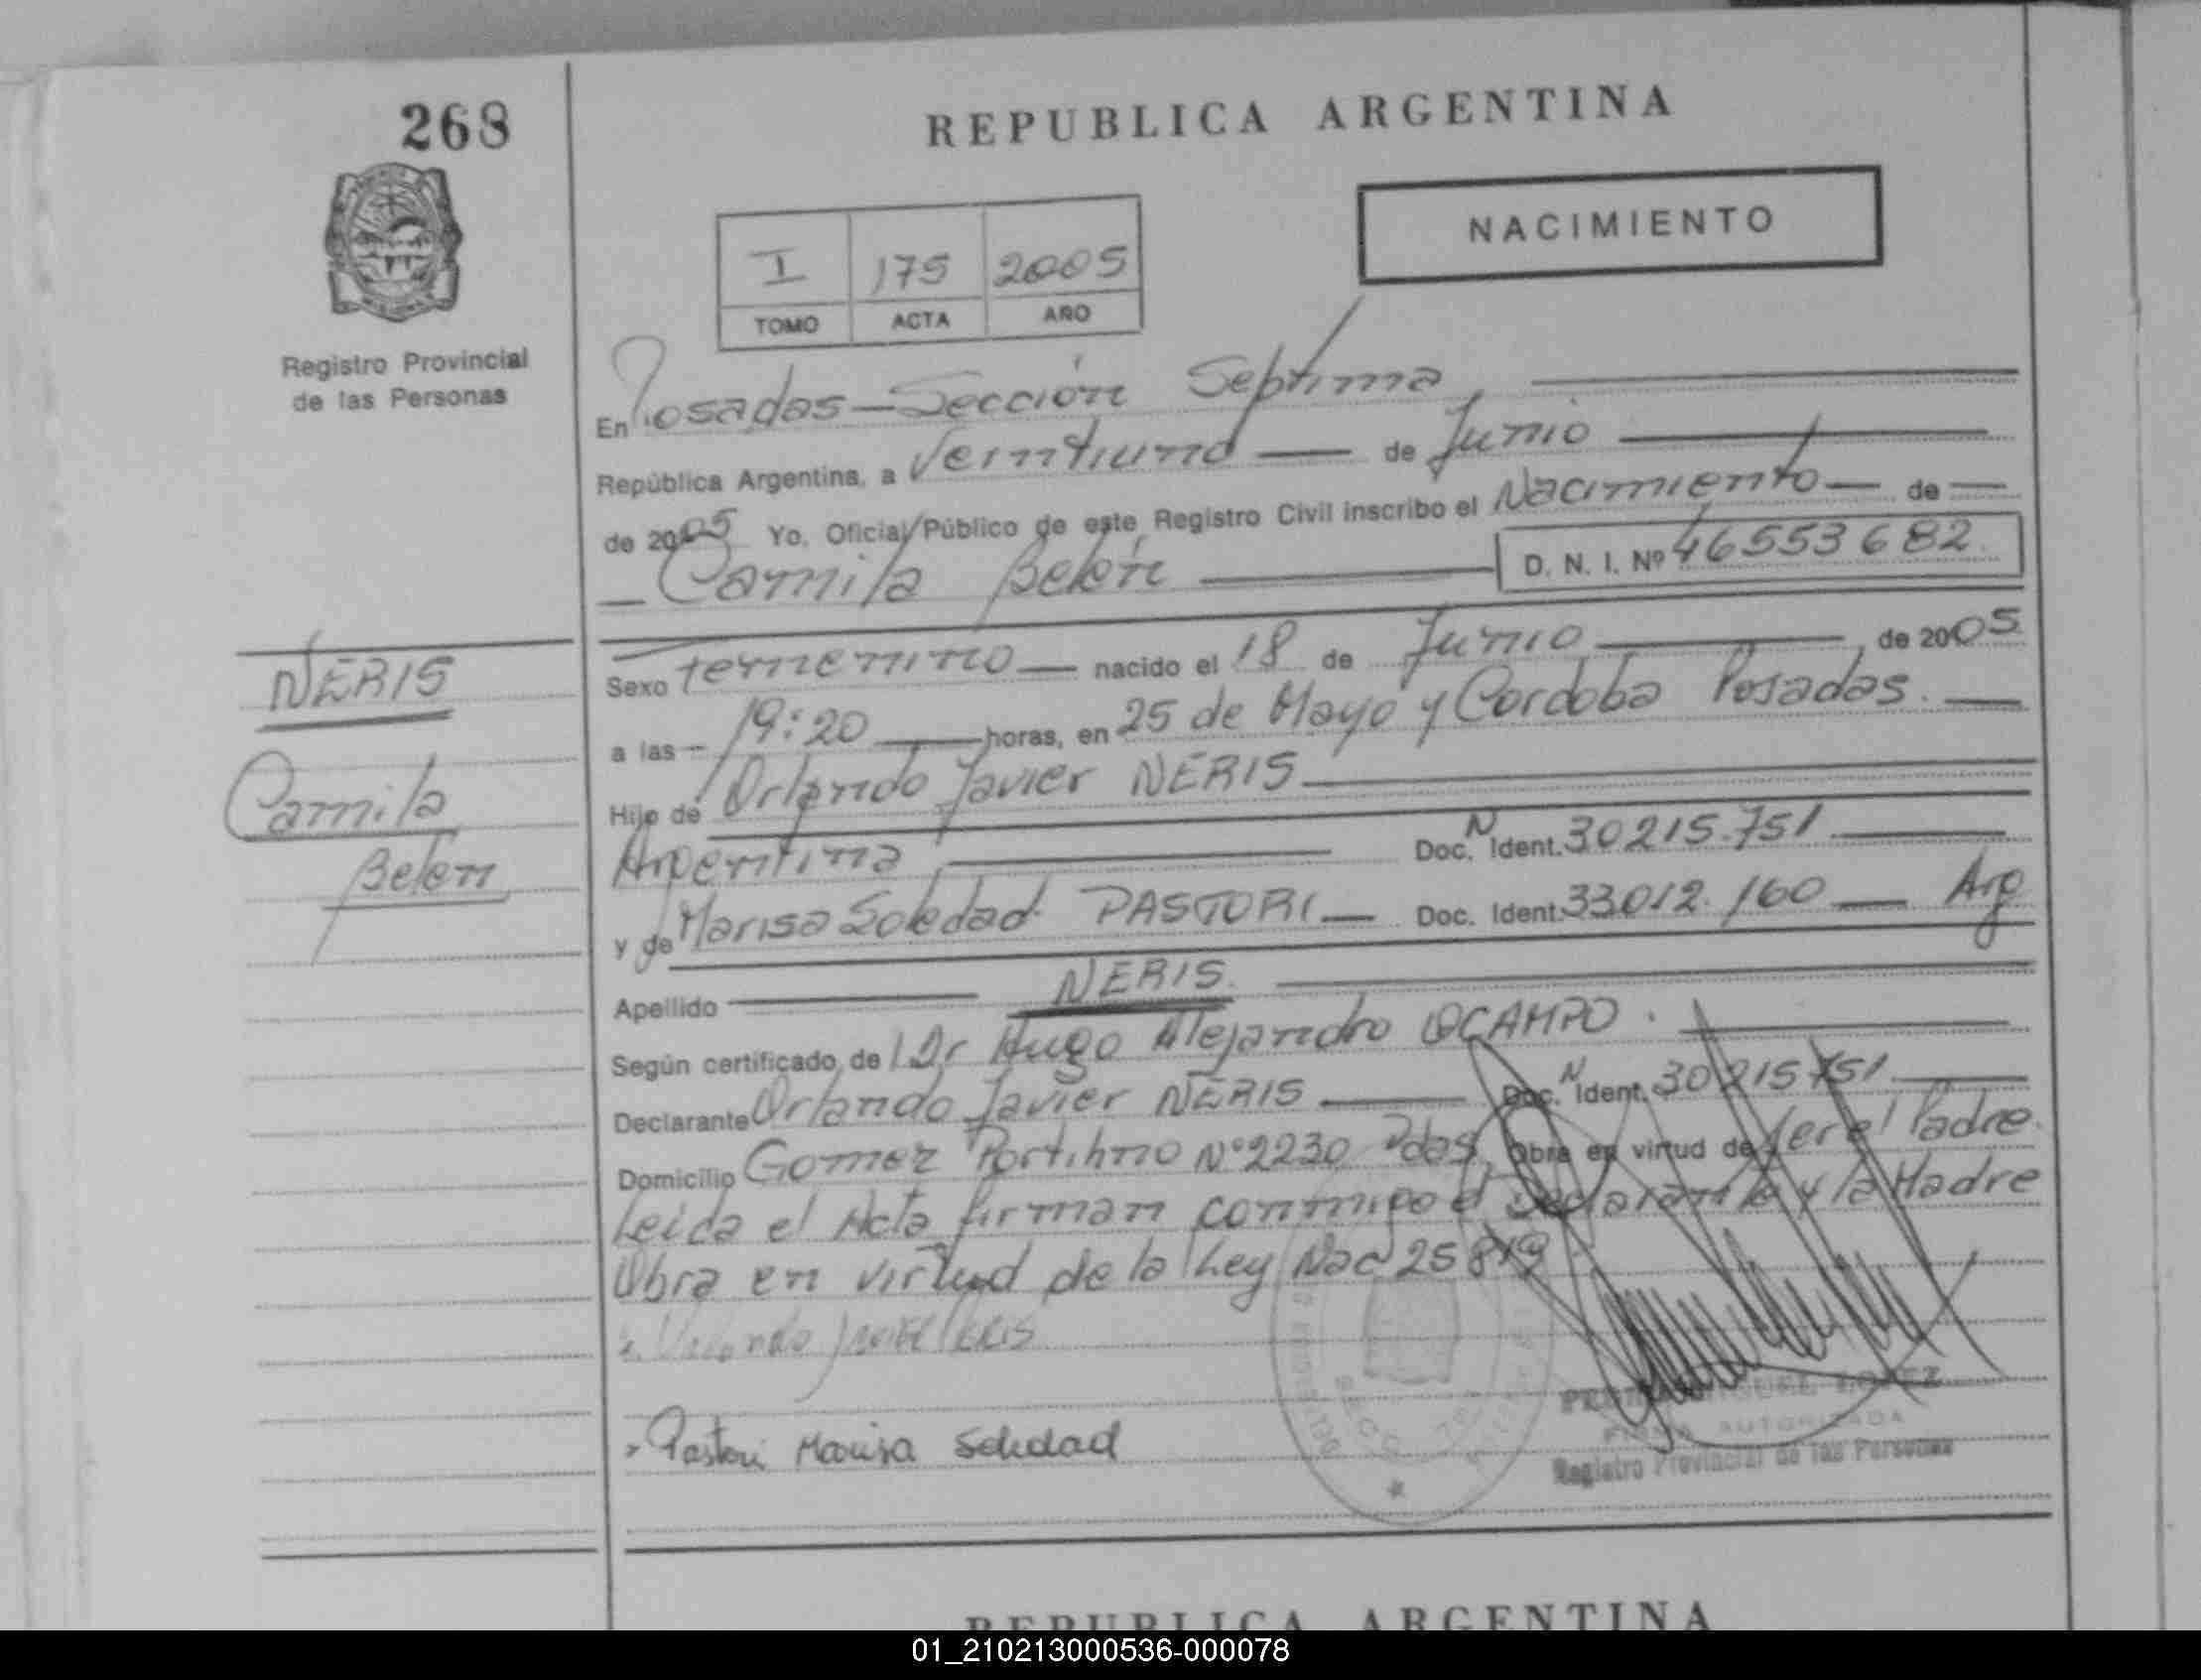 268
REPUBLICA ARGENTINA
NACIMIENTO
I 175 2005
TOMO ACTA AÑO
Registro Provincial
de las Personas
En Posadas - Sección Septima
República Argentina, a Veintiuno de Junio
de 2005 Yo, Oficial Público de este Registro Civil inscribo el Nacimiento de
Camila Belén D. N. I. Nº 46553682
NERIS
Camila
Belen
Sexo femenino nacido el 18 de Junio de 2005
a las 19:20 horas, en 25 de Mayo y Cordoba Posadas.
Hijo de Orlando Javier NERIS
Argentina Doc. N Ident. 30215.751
y de Marisa Soledad PASTORI Doc. Ident. 33012.160 Arg
Apellido NERIS
Según certificado de Dr Hugo Alejandro OCAMPO.
Declarante Orlando Javier NERIS Doc. N Ident. 30215751
Domicilio Gomez Portihno Nº2230 Pdas, Obra en virtud de ser el Padre.
Leida el Acta firman conmigo el Declarante y la Madre
Obra en virtud de la Ley Nac 25819
Javier NERIS
Pastori Marisa Soledad
LOPEZ
FIRMA AUTORIZADA
Registro Provincial de las Personas
REPUBLICA ARGENTINA
01_210213000536-000078